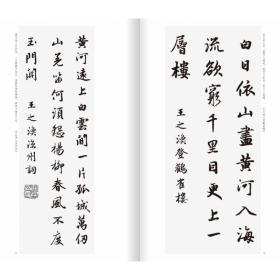 白日依山盡黄河入海
流欲窮千里目更上一
層樓 王之渙登鸛雀樓
黄河遠上白雲間一片孤城萬仞
山羌笛何須怨楊柳春風不度
玉門關 王之渙涼州詞